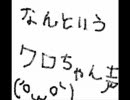 なんという
クロちゃん声
(´・ω・｀)